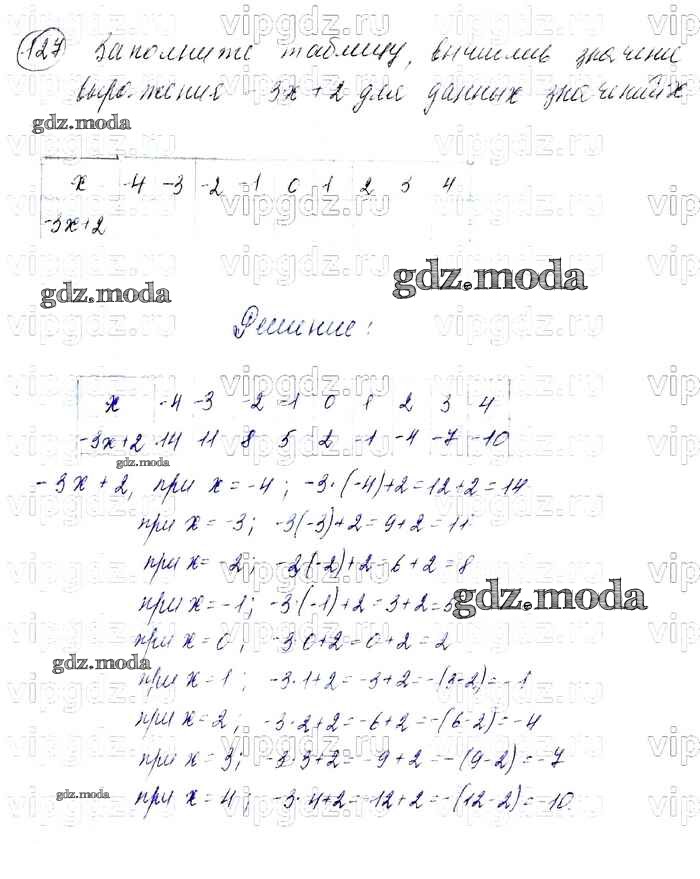 127 Заполните таблицу, вычислив значение
выражения -3x+2 для данных значений x
gdz.moda
x -4 -3 -2 -1 0 1 2 3 4
-3x+2
gdz.moda
gdz.moda
Решение:
x -4 -3 -2 -1 0 1 2 3 4
-3x+2 14 11 8 5 2 -1 -4 -7 -10
gdz.moda
-3x+2, при x=-4; -3·(-4)+2=12+2=14
при x=-3; -3(-3)+2=9+2=11
при x=-2; -3(-2)+2=6+2=8
при x=-1; -3·(-1)+2=3+2=5
gdz.moda
при x=0; -3·0+2=0+2=2
gdz.moda
при x=1; -3·1+2=-3+2=-(3-2)=-1
при x=2; -3·2+2=-6+2=-(6-2)=-4
при x=3; -3·3+2=-9+2=-(9-2)=-7
gdz.moda
при x=4; -3·4+2=-12+2=-(12-2)=-10
vipgdz.ru